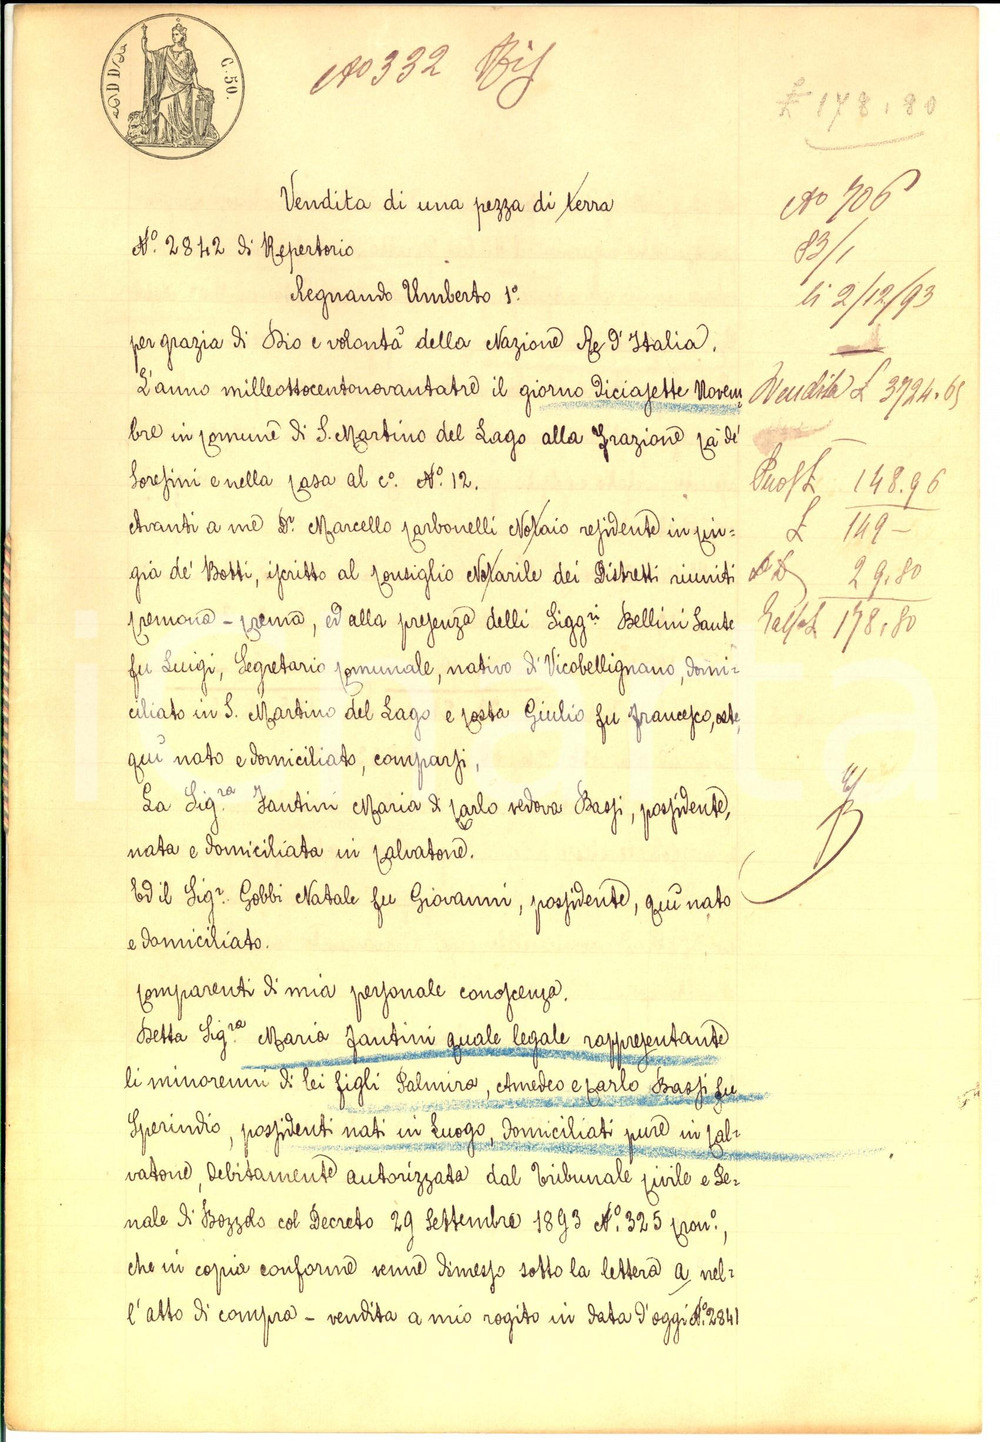 C. 50.
No 332 Bis
£ 178.80
Vendita di una pezza di terra
No 706
N.° 2842 di Repertorio
83/1
Regnando Umberto 1°.
li 2/12/93
per grazia di Dio e volontà della Nazione Re d'Italia.
L'anno milleottocentonovantatre il giorno diciasette Novem
Vendita £ 3724.65
bre in comune di S. Martino del Lago alla frazione Cà de'
Soresini e nella casa al c°. N.° 12.
148.96
Avanti a me Dr. Marcello Carbonelli Notaio residente in Cin=
£ 149 –
gia de' Botti, iscritto al Consiglio Notarile dei Distretti riuniti
29.80
Cremona – Crema, ed alla presenza delli Sigg.ri Bellini Sante
178.80
fu Luigi, Segretario Comunale, nativo di Vicobellignano, domi=
ciliato in S. Martino del Lago e Costa Giulio fu Francesco, oste,
quì nato e domiciliato, comparsi,
La Sig.ra Fantini Maria di Carlo vedova Bassi, possidente,
nata e domiciliata in Calvatone.
Ed il Sigr. Gobbi Natale fu Giovanni, possidente, quì nato
e domiciliato.
Comparenti di mia personale conoscenza.
Detta Sig.ra Maria Fantini quale legale rappresentante
li minorenni di lei figli Palmira, Amedeo e Carlo Bassi fu
Sperindio, possidenti nati in Luogo, domiciliati pure in Cal=
vatone, debitamente autorizzata dal Tribunale Civile e Pe=
nale di Bozzolo col Decreto 29 Settembre 1893 N.° 325 Cron.°,
che in copia conforme venne dimesso sotto la lettera A nel=
l'atto di compra – vendita a mio rogito in data d'oggi N.° 2841